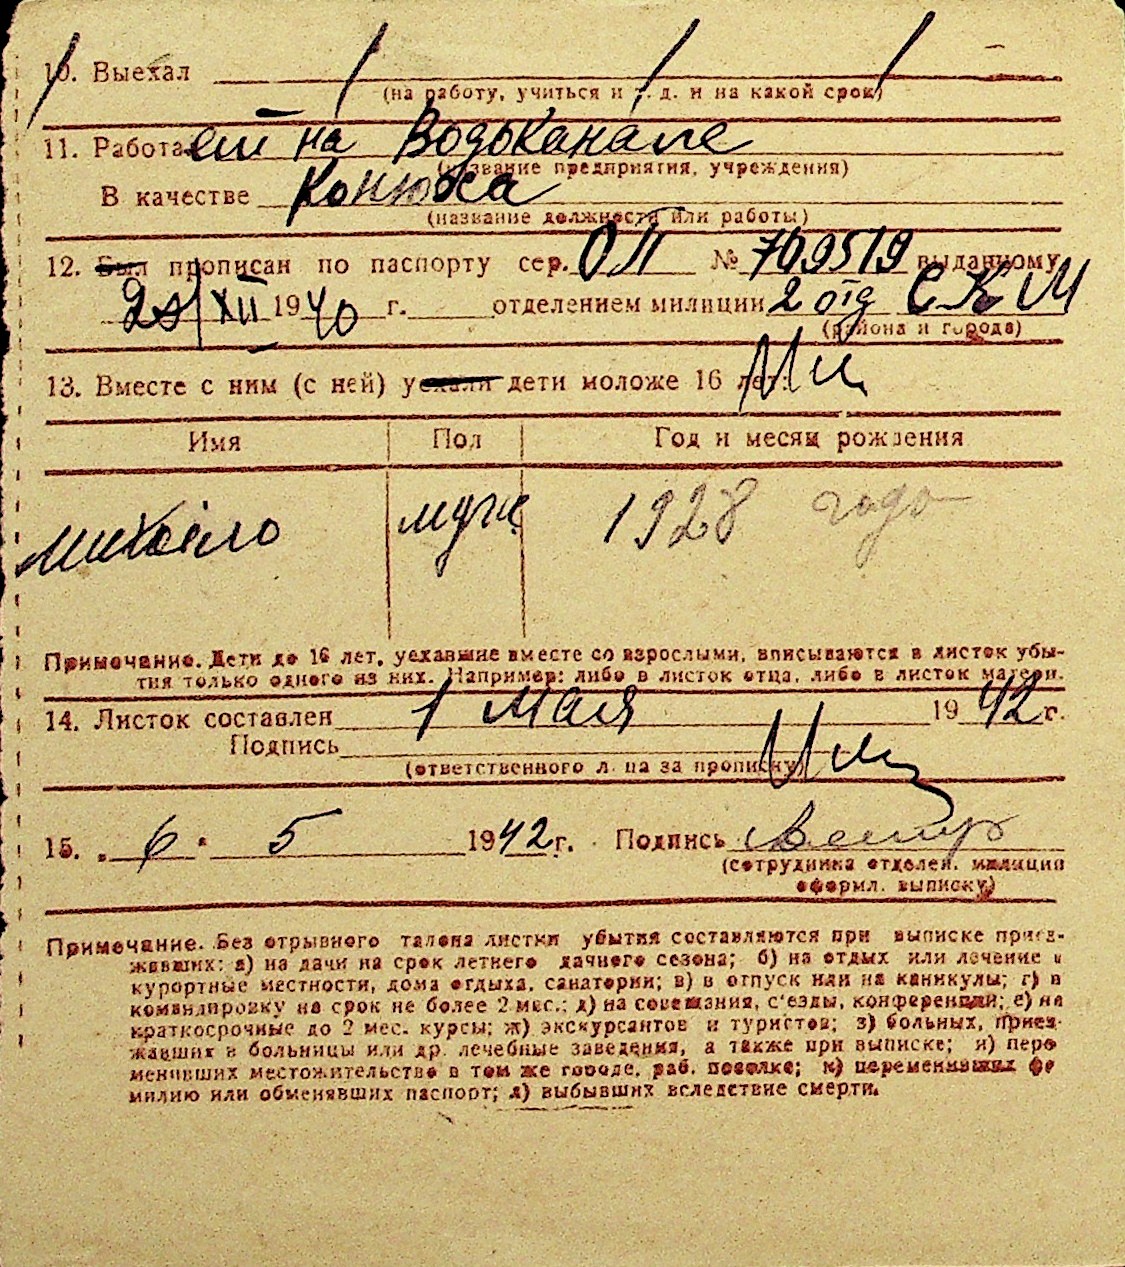 10. Выехал
(на работу, учиться и т. д. и на какой срок)
11. Работает на Водоканале
(название предприятия, учреждения)
В качестве Конюха
(название должности или работы)
12. Был прописан по паспорту сер. ОП № 709519 выданному
XII 1940 г. отделением милиции 2 отд СКМ
(района и города)
13. Вместе с ним (с ней) уехали дети моложе 16 лет:
Имя Пол Год и месяц рождения
михайло муж 1928 года
Примечание. Дети до 16 лет, уехавшие вместе со взрослыми, вписываются в листок убы-
тия только одного из них. Например: либо в листок отца, либо в листок матери.
14. Листок составлен 1 мая 1942 г.
Подпись
(ответственного лица за прописку)
15. „ 6 " 5 1942 г. Подпись
(сотрудника отделен. милиции
оформл. выписку)
Примечание. Без отрывного талона листки убытия составляются при выписке приез-
жавших: а) на дачи на срок летнего дачного сезона; б) на отдых или лечение в
курортные местности, дома отдыха, санатории; в) в отпуск или на каникулы; г) в
командировку на срок не более 2 мес.; д) на совещания, с'езды, конференции; е) на
краткосрочные до 2 мес. курсы; ж) экскурсантов и туристов; з) больных, приез-
жавших в больницы или др. лечебные заведения, а также при выписке; и) пере
менивших местожительство в том же городе, раб. поселке; к) переменивших фа
милию или обменявших паспорт; л) выбывших вследствие смерти.